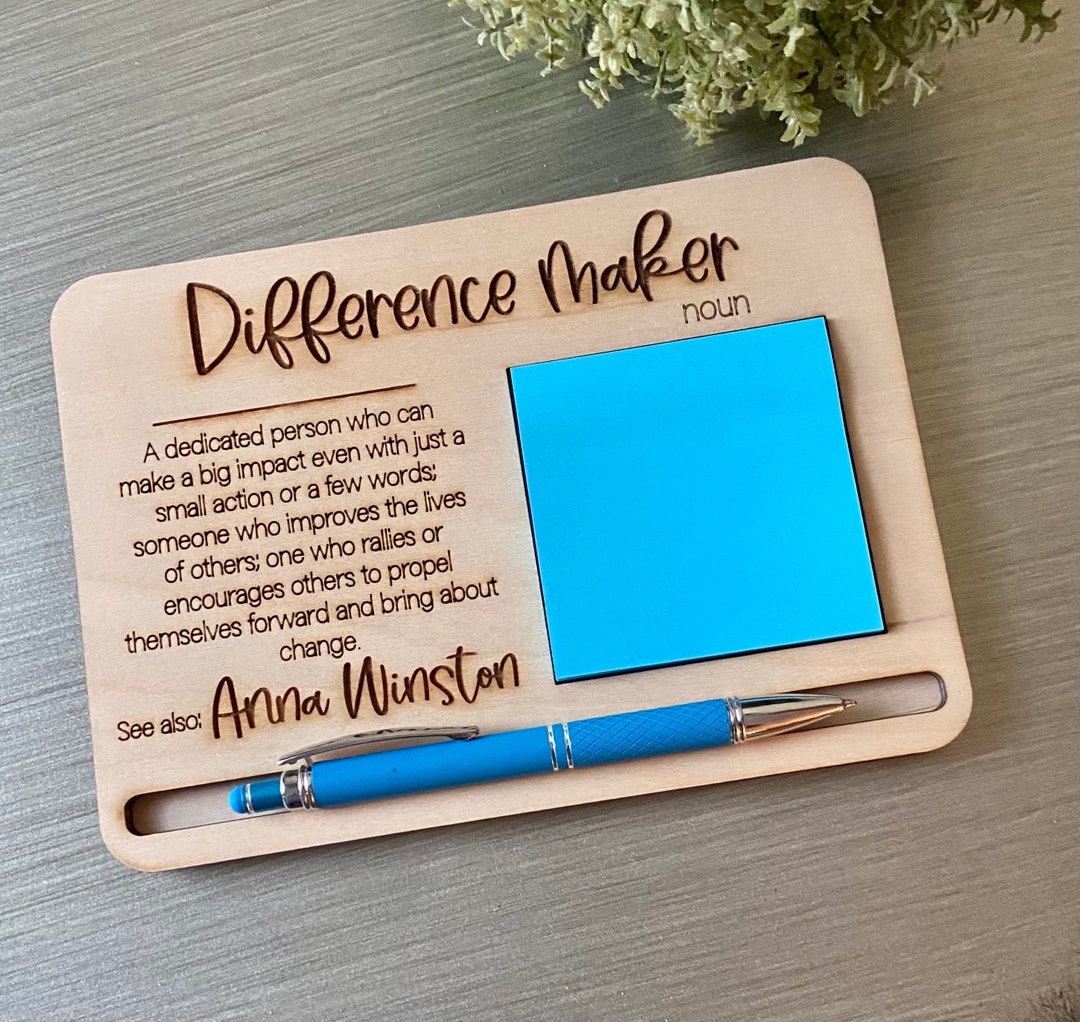 Difference Maker
noun
A dedicated person who can
make a big impact even with just a
small action or a few words;
someone who improves the lives
of others; one who rallies or
encourages others to propel
themselves forward and bring about
change.
See also: Anna Winston